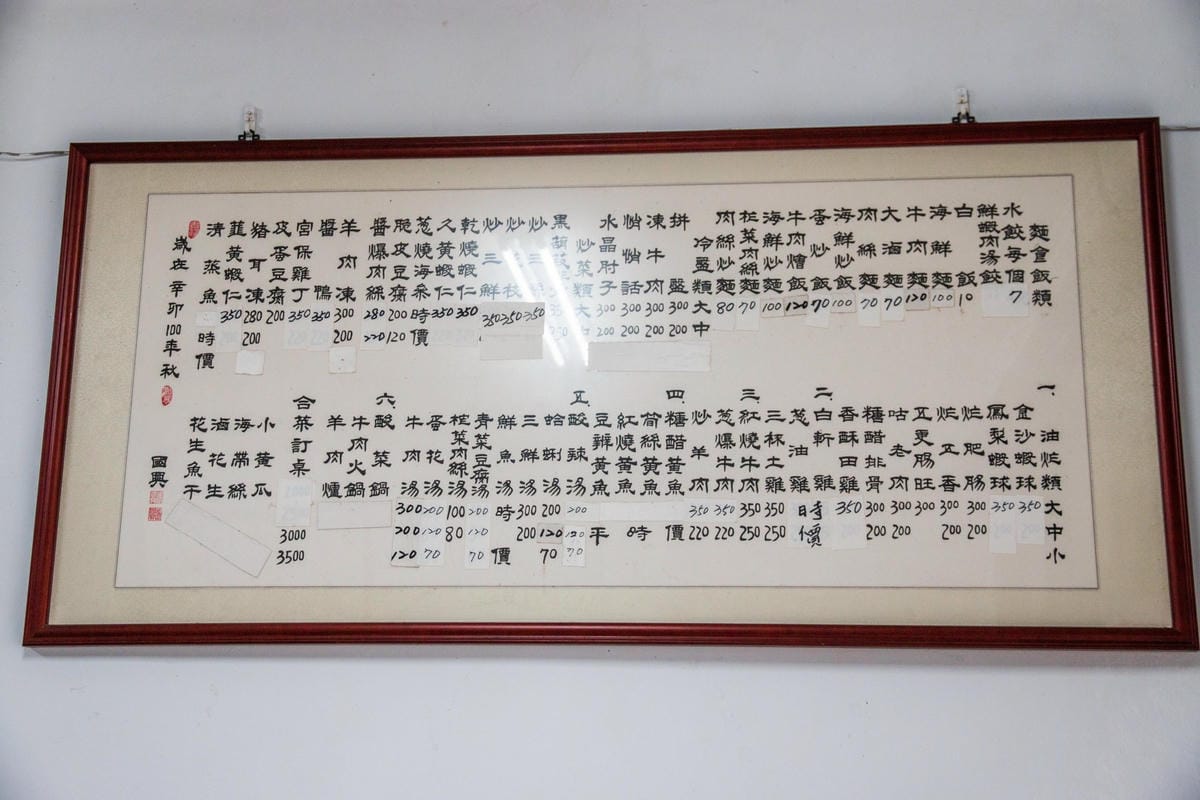 麵食飯類
水餃每個 7
鮮蝦肉湯餃
白飯 10
海鮮麵 100
牛肉麵 120
大滷麵 70
肉絲麵 70
海鮮炒飯 100
蛋炒飯 70
牛肉燴飯 120
海鮮炒麵 100
榨菜肉絲麵 70
肉絲炒麵 80
冷盤類 大 中
拼盤 300 200
凍牛肉 300 200
悄悄話 300 200
水晶肘子 300 200
炒菜類 大 中
炒三 350
炒 枝 350
炒三鮮 350
乾燒蝦仁 350
久黃蝦仁 350
蔥燒海參 時價
脆皮豆腐 200 120
醬爆肉絲 280 220
羊肉凍 300 200
醬鴨 350 220
宮保雞丁 350 220
皮蛋豆腐 200
豬耳凍 280 200
韮黃蝦仁 350 200
清蒸魚 時價
歲在辛卯100年秋
一、油炸類 大 中 小
金沙蝦球 350
鳳梨蝦球 350
炸肥腸 300 200
炸五香 300 200
五更腸旺 300
咕老肉 300 200
糖醋排骨 300 200
香酥田雞 350
二、白斬雞 時價
蔥油雞
三杯土雞 350 250
三、紅燒牛肉 350 250
蔥爆牛肉 350 220
炒羊肉 350 220
四、糖醋黃魚 時價
筍絲黃魚
紅燒黃魚
豆瓣黃魚 平
五、酸辣湯 200 120 70
蛤蜊湯 200 120 70
三鮮湯 300 200
鮮魚湯 時價
青菜豆腐湯 200 120 70
榨菜肉絲湯 100 80
蛋花湯 200 120 70
牛肉湯 300 200 120
六、酸菜鍋
牛肉火鍋
羊肉爐
合菜訂桌 3000 3500
小黃瓜
海帶絲
滷花生
花生魚干
國興